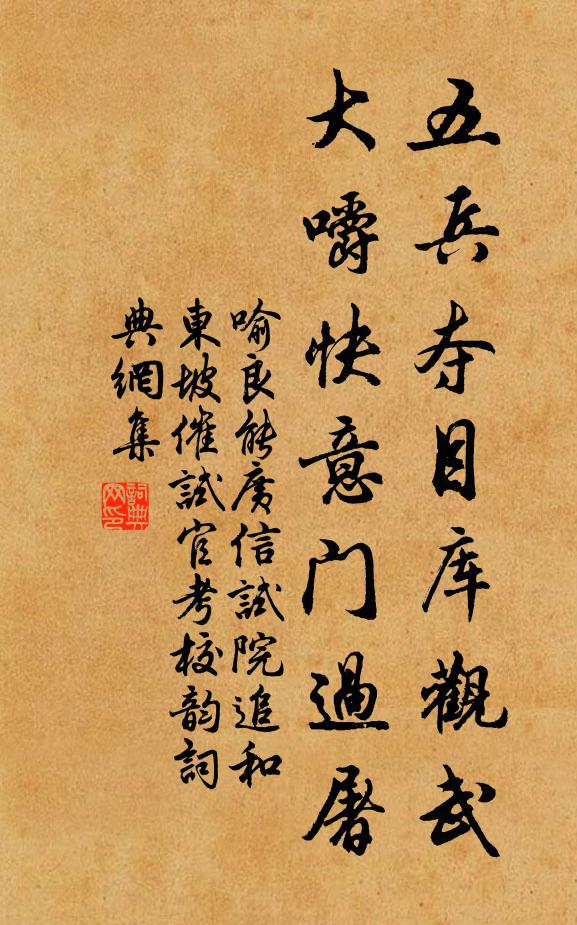 五兵夺目库觀武
大嚼快意门過屠
喻良能廣信試院追和
東坡催試官考校韵詞
典網集
詞典網印